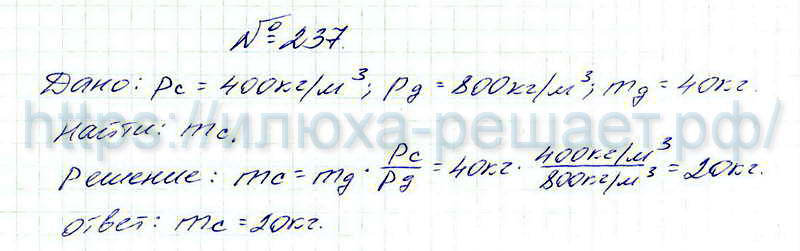 № 237.
Дано: ρс = 400кг/м³; ρд = 800кг/м³; mд = 40кг.
Найти: mс.
Решение: mс = mд · ρс/ρд = 40кг · 400кг/м³/800кг/м³ = 20кг.
ответ: mс = 20кг.
https://илюха-решает.рф/